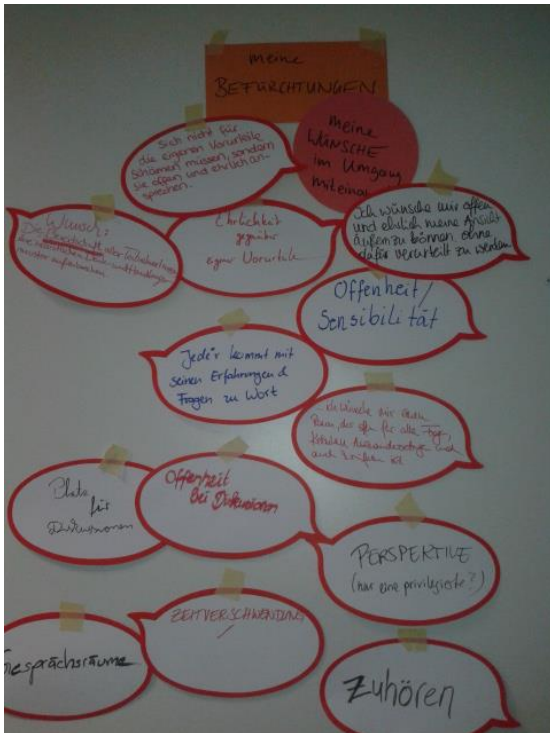 meine
BEFÜRCHTUNGEN
meine
WÜNSCHE
im Umgang
miteina
Sich nicht für
die eigenen Vorurteile
schämen müssen, sondern
sie offen und ehrlich an-
sprechen.
Wunsch:
Die der Teilnehmer/innen
Ehrlichkeit
gegenüber
eigener Vorurteile
Ich wünsche mir offen
und ehrlich meine Ansicht
äußern zu können, ohne
dafür verurteilt zu werden
Offenheit/
Sensibilität
Jede*r kommt mit
seinen Erfahrungen &
Fragen zu Wort
...ich wünsche mir einen
Raum, der offen für alle Fragen,
und
auch ist
Platz
für
Diskussionen
Offenheit
Bei Diskussionen
PERSPEKTIVE
(nur eine privilegierte?)
ZEITVERSCHWENDUNG
/
Gesprächsräume
Zuhören